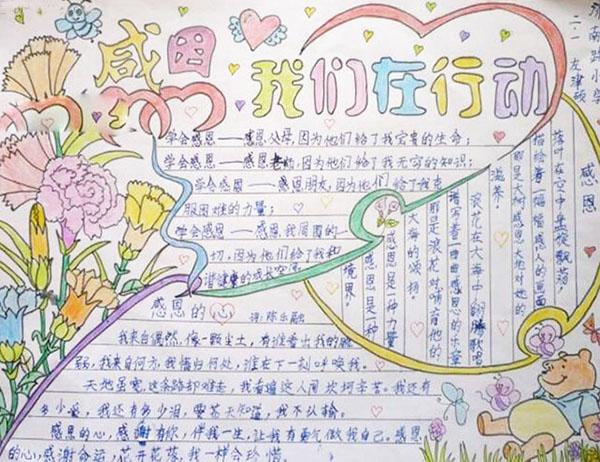 感恩
我们在行动
济南路小学
二.1 左肄硕
学会感恩——感恩父母,因为他们给了我宝贵的生命;
学会感恩——感恩老师,因为他们给了我无穷的知识;
学会感恩——感恩朋友,因为他们给了我克
服困难的力量;
学会感恩——感恩我周围的一
切,因为他们给了我和
谐健康的成长空间
感恩
落叶在空中盘旋飘荡,
描绘着一幅幅感人的画面
那是大树感恩大地对她的
滋养。
浪花在大海中翻腾歌唱
谱写着一曲曲感恩的乐章
那是浪花对哺育他的
大海的颂扬。
感恩是一种力量
感恩是一种
境界。
感恩的心
词:陈乐融
我来自偶然,像一颗尘土,有谁看出我的脆
弱,我来自何方,我情归何处,谁在下一刻呼唤我。
天地虽宽,这条路却难走,我看遍这人间坎坷辛苦。我还有
多少爱,我还有多少泪,要苍天知道,我不认输。
感恩的心,感谢有你,伴我一生,让我有勇气做我自己。感恩
的心,感谢命运,花开花落,我一样会珍惜